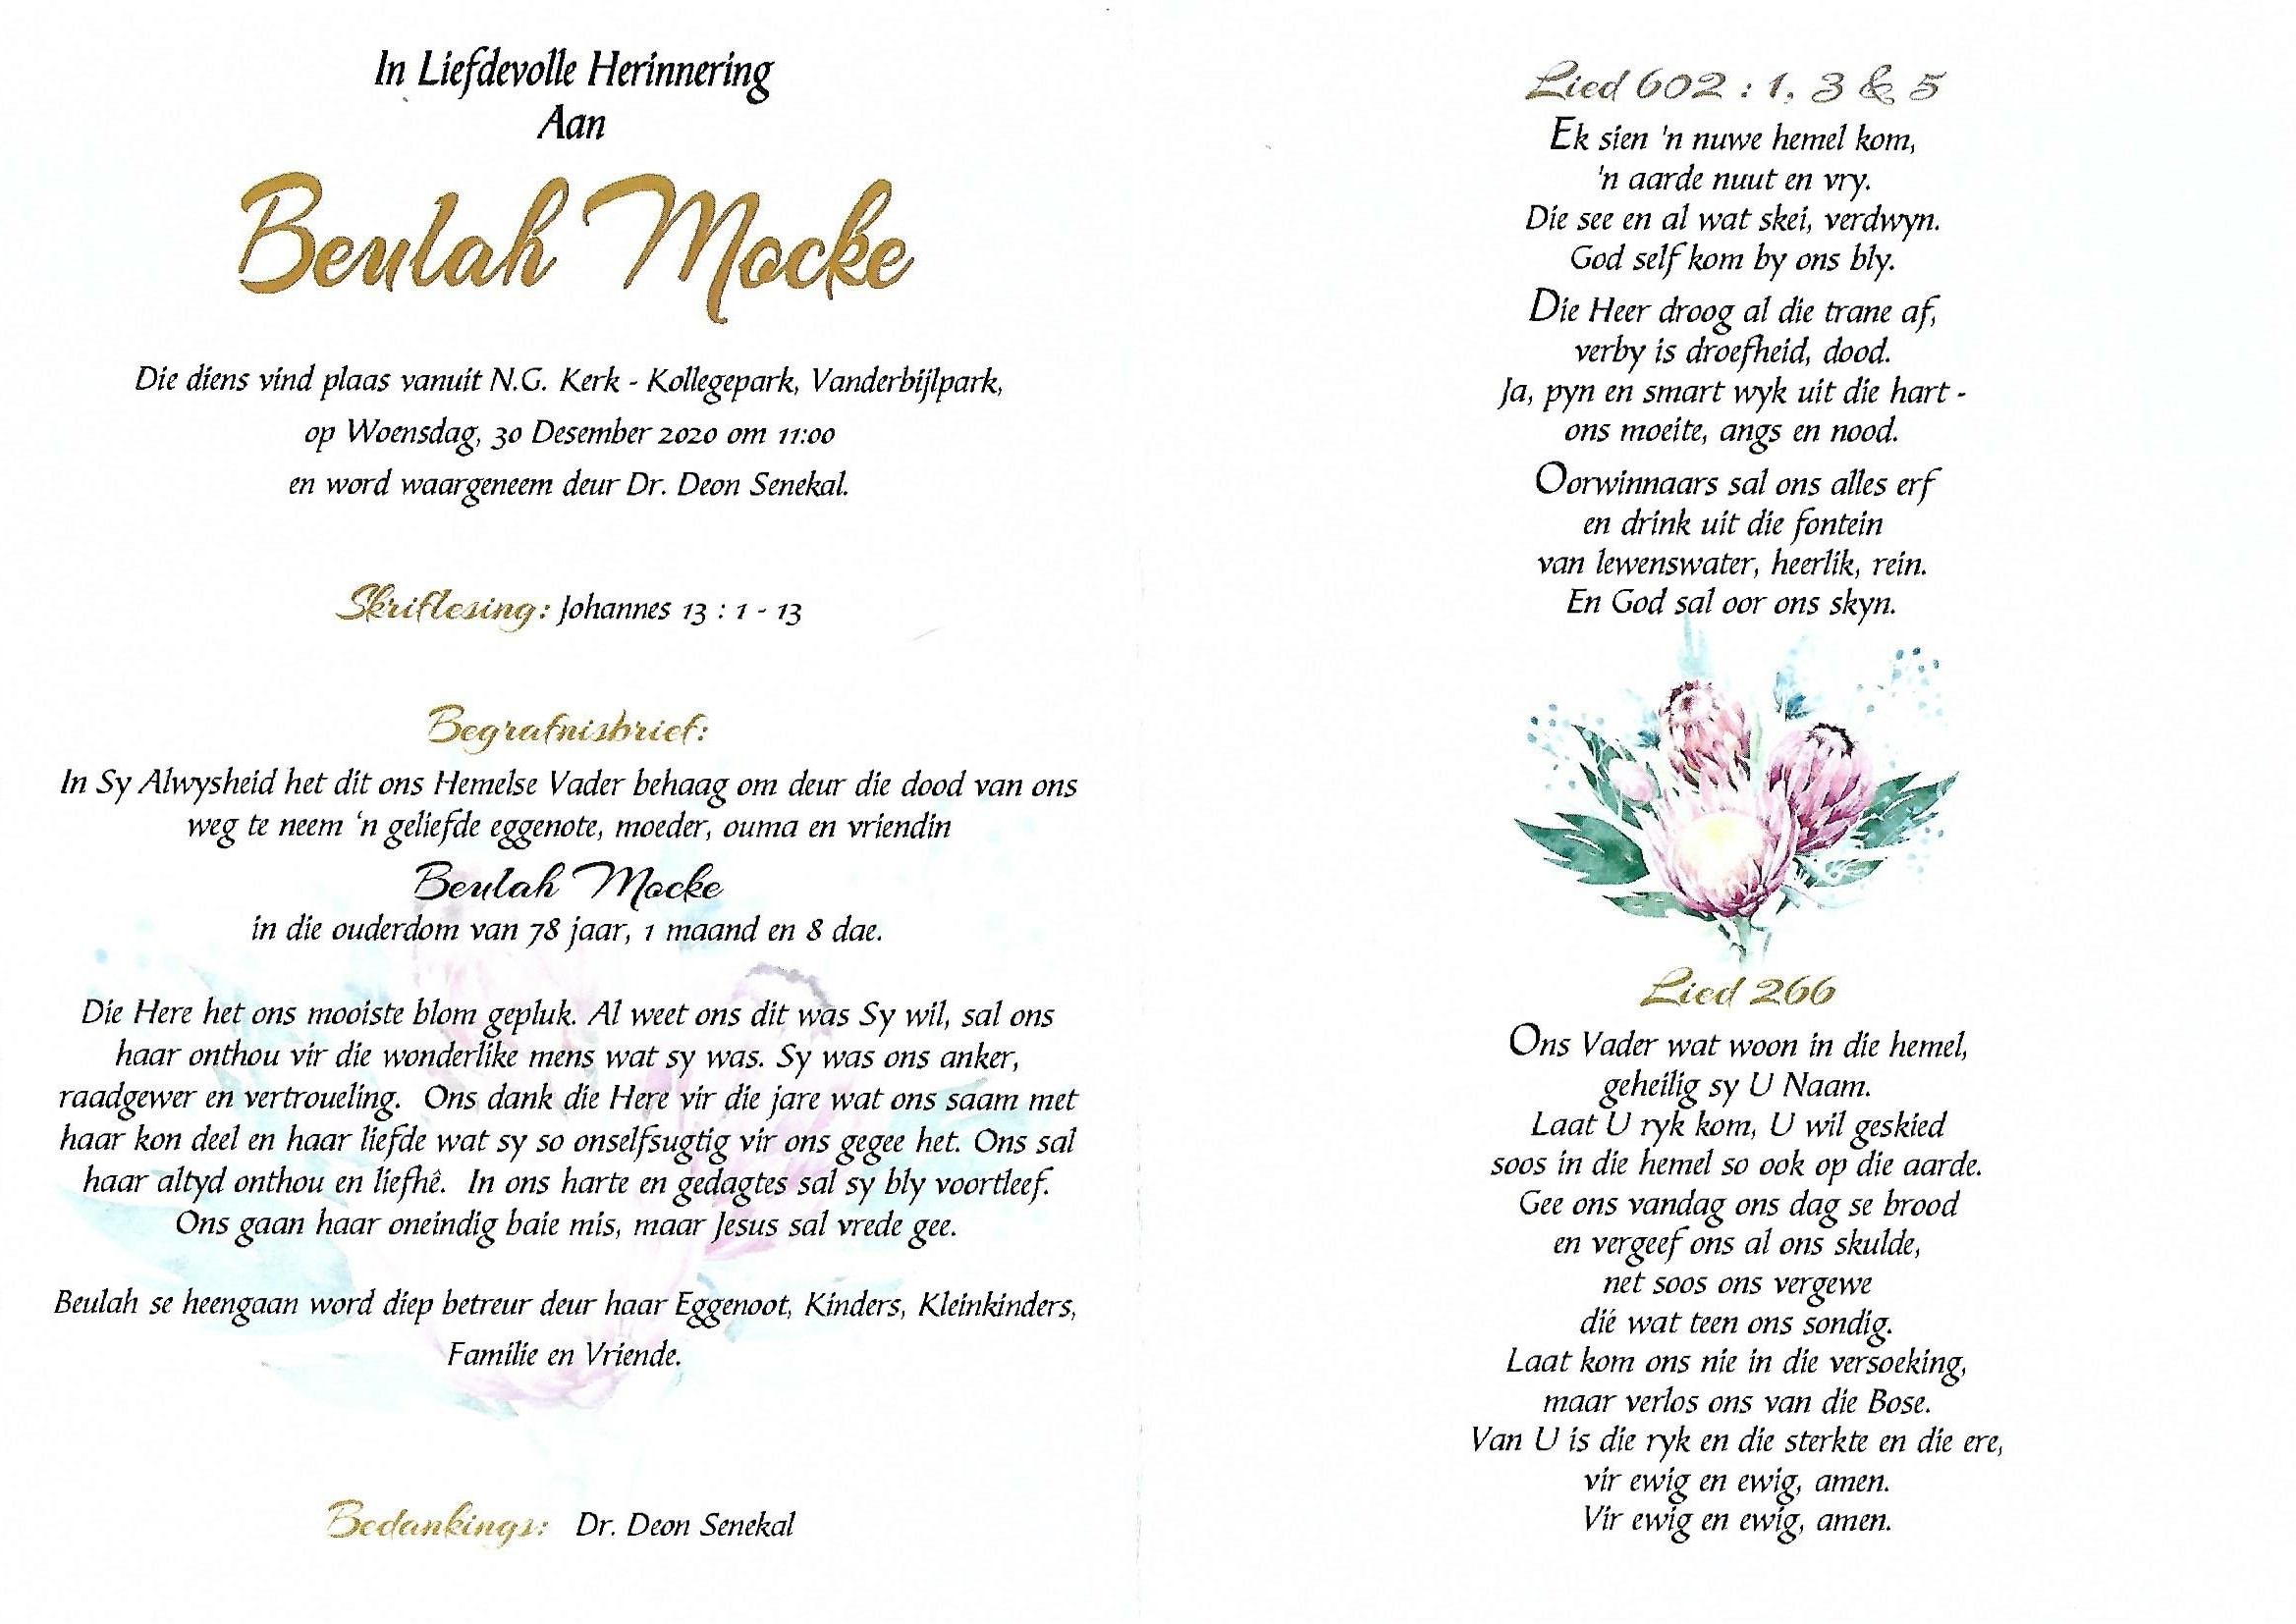 In Liefdevolle Herinnering
Aan
Beulah Mocke
Die diens vind plaas vanuit N.G. Kerk - Kollegepark, Vanderbijlpark,
op Woensdag, 30 Desember 2020 om 11:00
en word waargeneem deur Dr. Deon Senekal.
Skriflesing: Johannes 13 : 1 - 13
Begrafnisbrief:
In Sy Alwysheid het dit ons Hemelse Vader behaag om deur die dood van ons
weg te neem ‘n geliefde eggenote, moeder, ouma en vriendin
Beulah Mocke
in die ouderdom van 78 jaar, 1 maand en 8 dae.
Die Here het ons mooiste blom gepluk. Al weet ons dit was Sy wil, sal ons
haar onthou vir die wonderlike mens wat sy was. Sy was ons anker,
raadgewer en vertroueling. Ons dank die Here vir die jare wat ons saam met
haar kon deel en haar liefde wat sy so onselfsugtig vir ons gegee het. Ons sal
haar altyd onthou en liefhê. In ons harte en gedagtes sal sy bly voortleef.
Ons gaan haar oneindig baie mis, maar Jesus sal vrede gee.
Beulah se heengaan word diep betreur deur haar Eggenoot, Kinders, Kleinkinders,
Familie en Vriende.
Bedankings: Dr. Deon Senekal
Lied 602 : 1, 3 & 5
Ek sien 'n nuwe hemel kom,
'n aarde nuut en vry.
Die see en al wat skei, verdwyn.
God self kom by ons bly.
Die Heer droog al die trane af,
verby is droefheid, dood.
Ja, pyn en smart wyk uit die hart -
ons moeite, angs en nood.
Oorwinnaars sal ons alles erf
en drink uit die fontein
van lewenswater, heerlik, rein.
En God sal oor ons skyn.
Lied 266
Ons Vader wat woon in die hemel,
geheilig sy U Naam.
Laat U ryk kom, U wil geskied
soos in die hemel so ook op die aarde.
Gee ons vandag ons dag se brood
en vergeef ons al ons skulde,
net soos ons vergewe
dié wat teen ons sondig.
Laat kom ons nie in die versoeking,
maar verlos ons van die Bose.
Van U is die ryk en die sterkte en die ere,
vir ewig en ewig, amen.
Vir ewig en ewig, amen.